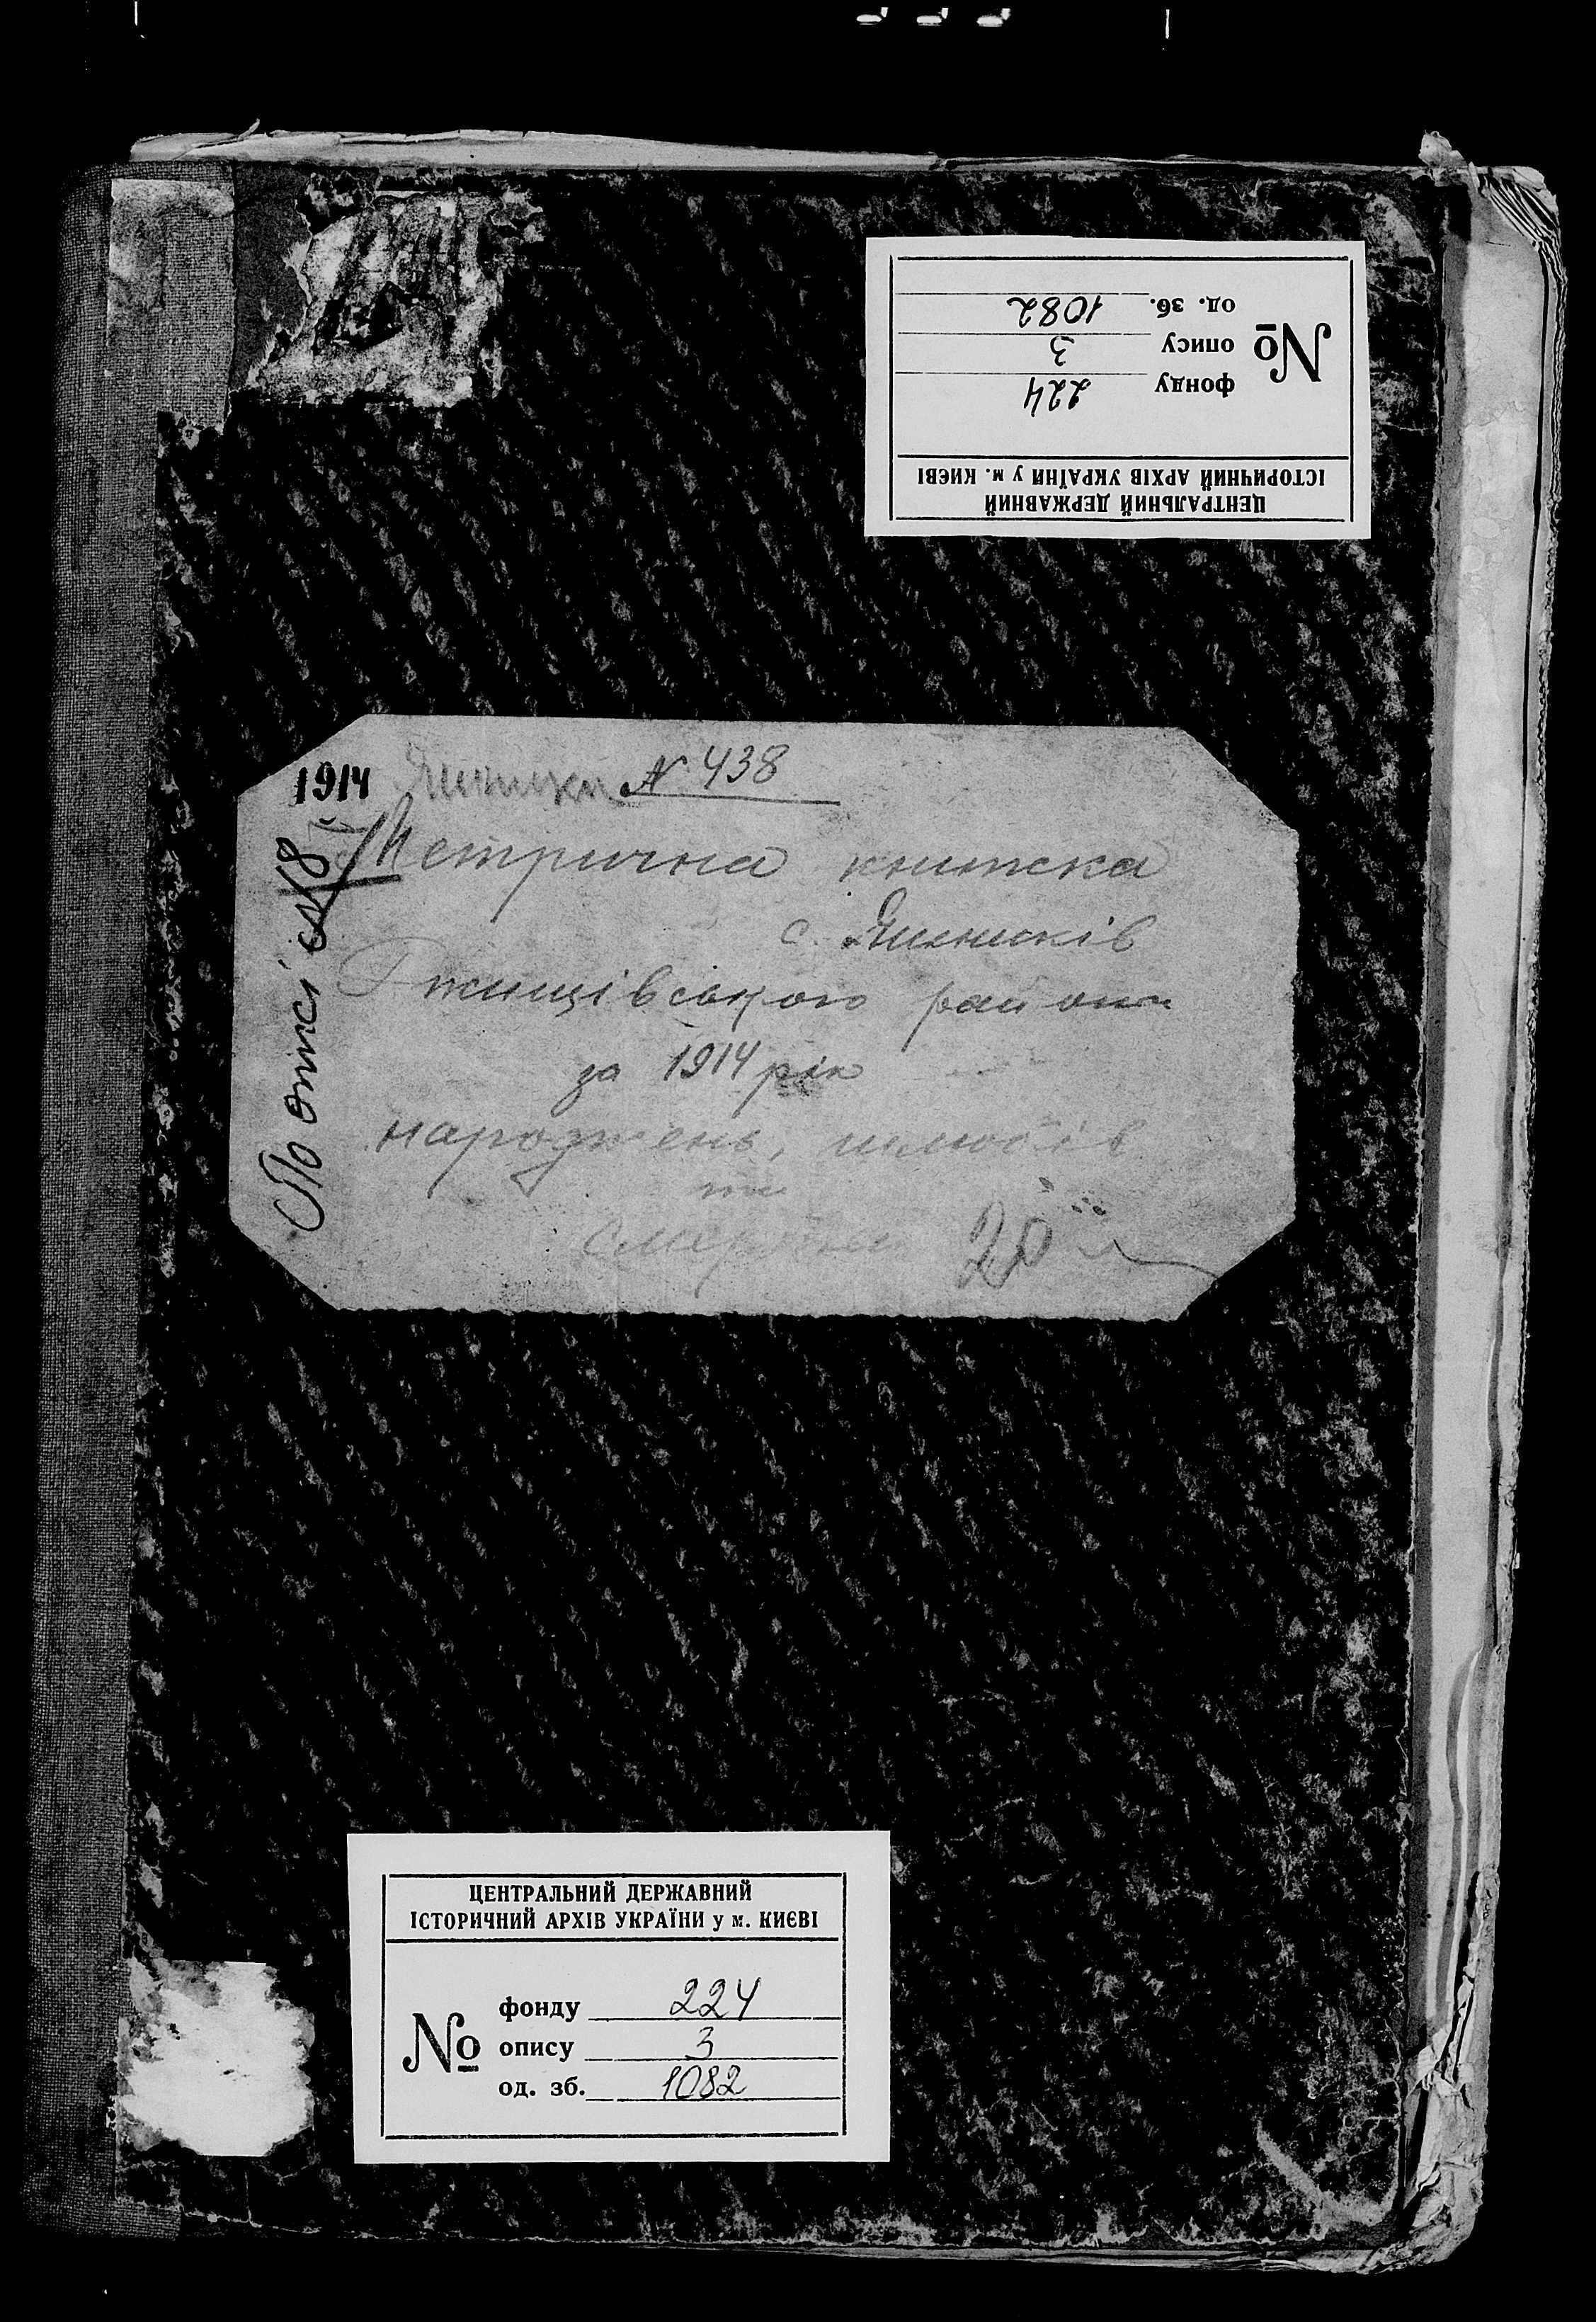 ЦЕНТРАЛЬНИЙ ДЕРЖАВНИЙ
ІСТОРИЧНИЙ АРХІВ УКРАЇНИ у м. КИЄВІ
№
фонду 224
опису 3
од. зб. 1082
1914 Яшники № 438
Метрична книжка
с. Яшників
Ржищівського району
за 1914 рік
народжень, шлюбів
та
смертей
20
По описі №8
ЦЕНТРАЛЬНИЙ ДЕРЖАВНИЙ
ІСТОРИЧНИЙ АРХІВ УКРАЇНИ у м. КИЄВІ
№
фонду 224
опису 3
од. зб. 1082